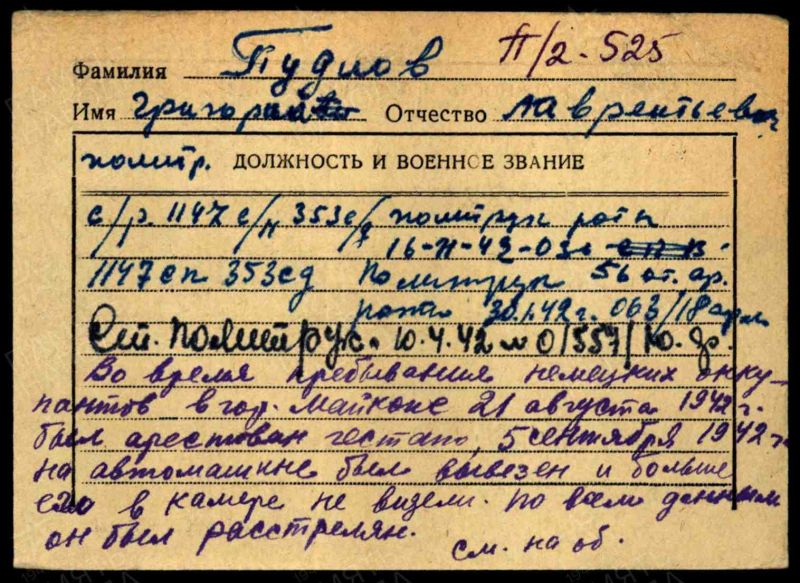 П/2-525
Фамилия Пудлов
Имя Григорий Отчество Лаврентьевич
политр. ДОЛЖНОСТЬ И ВОЕННОЕ ЗВАНИЕ
с/р. 1147 с/п 353 с/д политрук роты
16-II-42-03
1147 сп 353 сд Политрук 56 от. ар.
роты 30.1.42 г. 063/18 арм
Ст. Политрук. 10.4.42 № 01557/Ю. фр.
Во время пребывания немецких окку-
пантов в гор. Майкопе 21 августа 1942 г.
был арестован гестапо, 5 сентября 1942 г.
на автомашине был вывезен и больше
его в камере не видели. По всем данным
он был расстрелян.
см. на об.